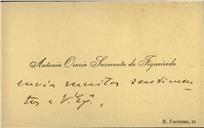 Antonio Osorio Sarmento de Figueiredo
envia muitos sentimen
tos a V. Exª.
R. Formosa,